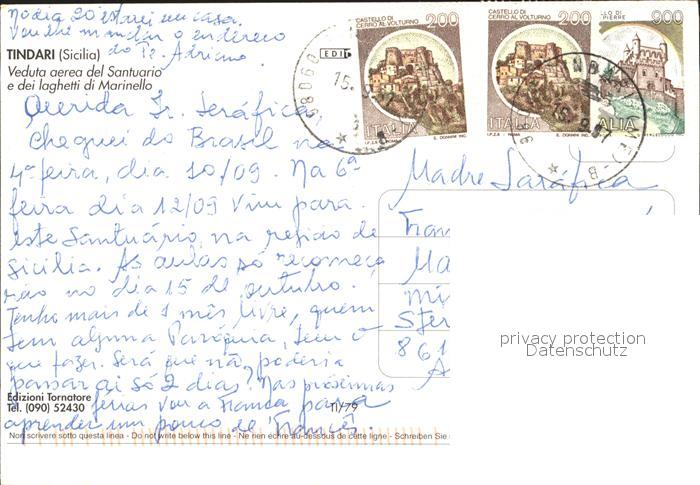 No dia 20 estarei em casa.
Vou lhe mandar o endereco
do Pe. Adriano.
TINDARI (Sicilia)
Veduta aerea del Santuario
e dei laghetti di Marinello
EDI
Querida Ir. Seráfica
Cheguei do Brasil na
4ª feira, dia 10/09. Na 6ª
feira dia 12/09 vim para
este Santuário, na região de
Sicília. As aulas só recomeça
rão no dia 15 de outubro.
Tenho mais de 1 mês livre, quem
tem alguma Paróquia, tem o
que fazer. Será que não poderia
passar aí só 2 dias? Nas próximas
férias vou a França para
aprender um pouco de Francês.
Edizioni Tornatore
Tel. (090) 52430
TI/79
Non scrivere sotto questa linea - Do not write below this line - Ne rien écrire au-dessous de cette ligne - Schreiben Sie
CASTELLO DI
CERRO AL VOLTURNO
200
ITALIA
I.P.Z.S. - ROMA
E. DONNINI INC.
CASTELLO DI
CERRO AL VOLTURNO
200
ITALIA
I.P.Z.S. - ROMA
E. DONNINI INC.
LLO DI
PIERRE
900
ITALIA
98060
15.
Madre Saráfica
Fran
Ma
Ster
861
A
privacy protection
Datenschutz